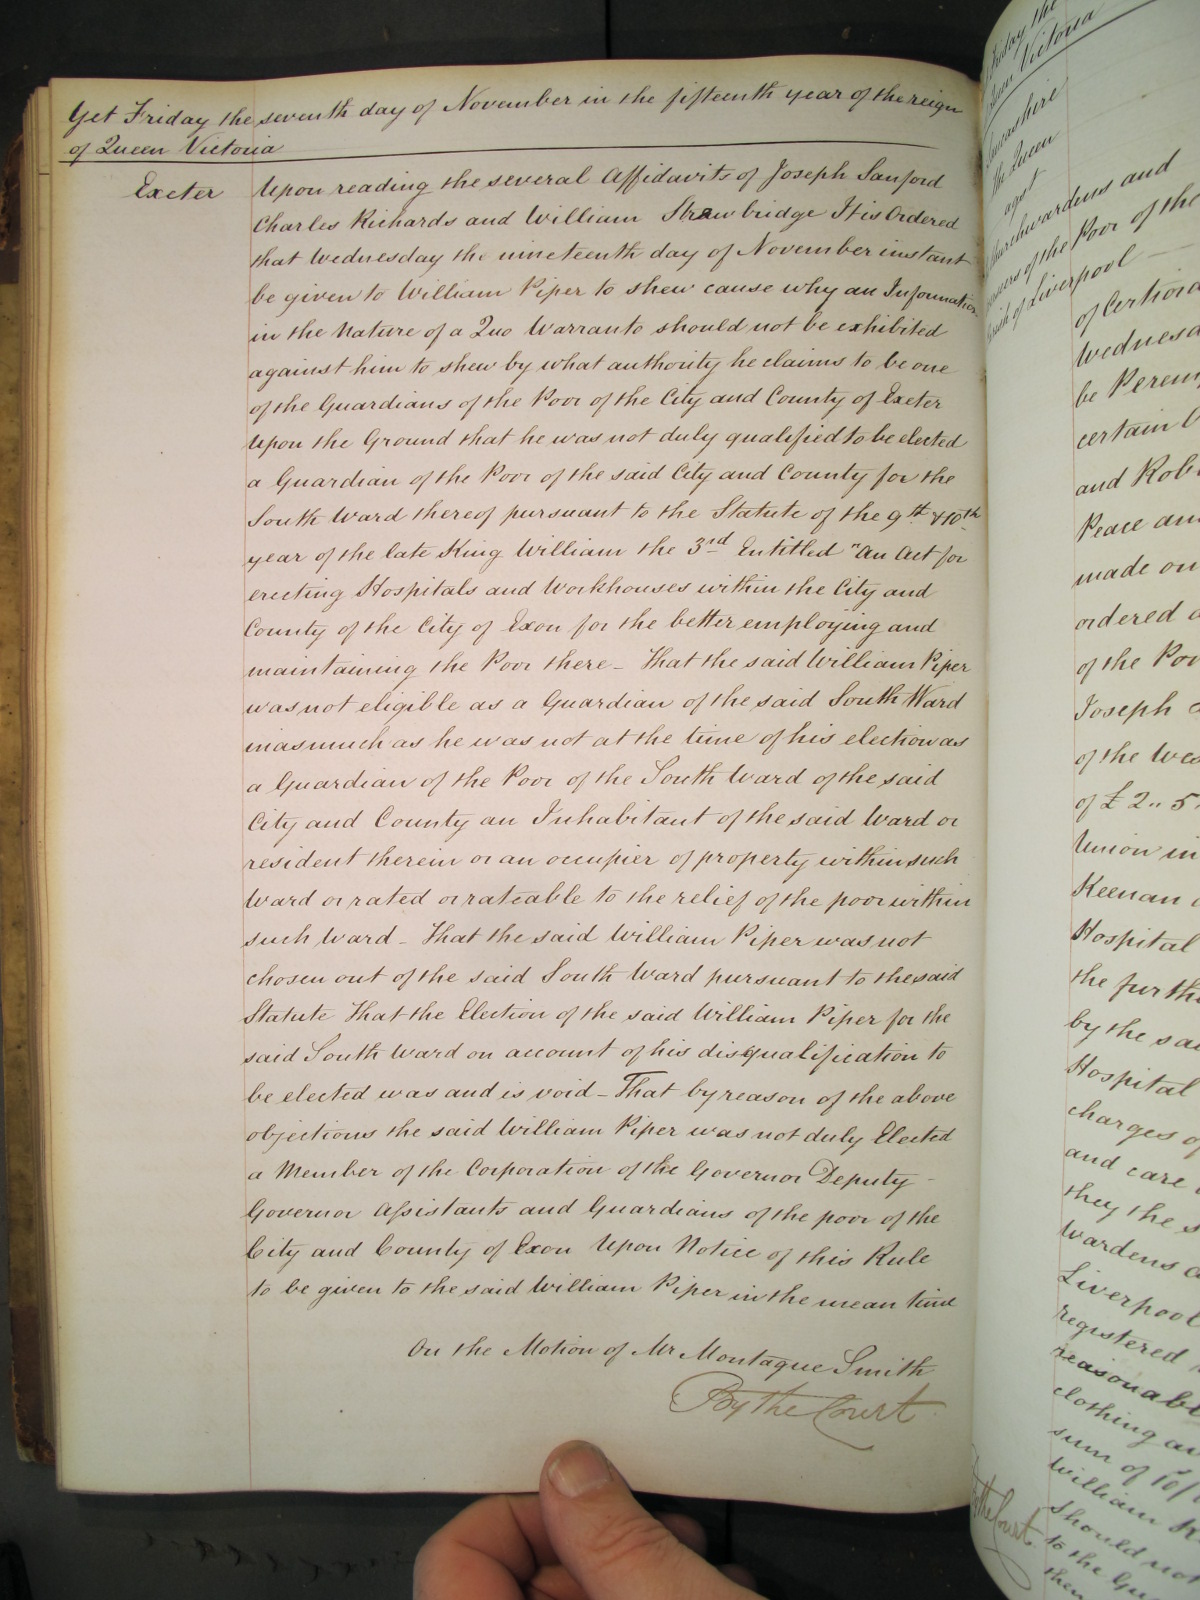 Yet Friday the seventh day of November in the fifteenth year of the reign
of Queen Victoria
Exeter
Upon reading the several Affidavits of Joseph Sanford
Charles Richards and William Strawbridge It is Ordered
that Wednesday the nineteenth day of November instant
be given to William Piper to shew cause why an Information
in the Nature of a Quo Warranto should not be exhibited
against him to shew by what authority he claims to be one
of the Guardians of the Poor of the City and County of Exeter
Upon the Ground that he was not duly qualified to be elected
a Guardian of the Poor of the said City and County for the
South Ward thereof pursuant to the Statute of the 9th & 10th
year of the late King William the 3rd Entitled "An Act for
erecting Hospitals and Workhouses within the City and
County of the City of Exon for the better employing and
maintaining the Poor there – That the said William Piper
was not eligible as a Guardian of the said South Ward
inasmuch as he was not at the time of his election as
a Guardian of the Poor of the South Ward of the said
City and County an Inhabitant of the said Ward or
resident therein or an occupier of property within such
Ward or rated or rateable to the relief of the poor within
such Ward – That the said William Piper was not
chosen out of the said South Ward pursuant to the said
Statute That the Election of the said William Piper for the
said South Ward on account of his disqualification to
be elected was and is void – That by reason of the above
objections the said William Piper was not duly Elected
a Member of the Corporation of the Governor Deputy
Governor Assistants and Guardians of the poor of the
City and County of Exon Upon Notice of this Rule
to be given to the said William Piper in the mean time
On the Motion of Mr Montague Smith
By the Court
Friday the
Queen Victoria
Lancashire
The Queen
agst
Churchwardens and
of the Poor of the
of Liverpool
of Certiora
Wednesd
be Perem
certain
and Rob
Peace an
made on
ordered
of the Poo
Joseph
of the Wes
of £2..5
Union in
Keenan
Hospital
the furth
by the sai
Hospital
charges of
and care
they the s
Wardens
Liverpool
registered
reasonabl
clothing an
sum of
William K
should not
to the Gu
then
By the Court